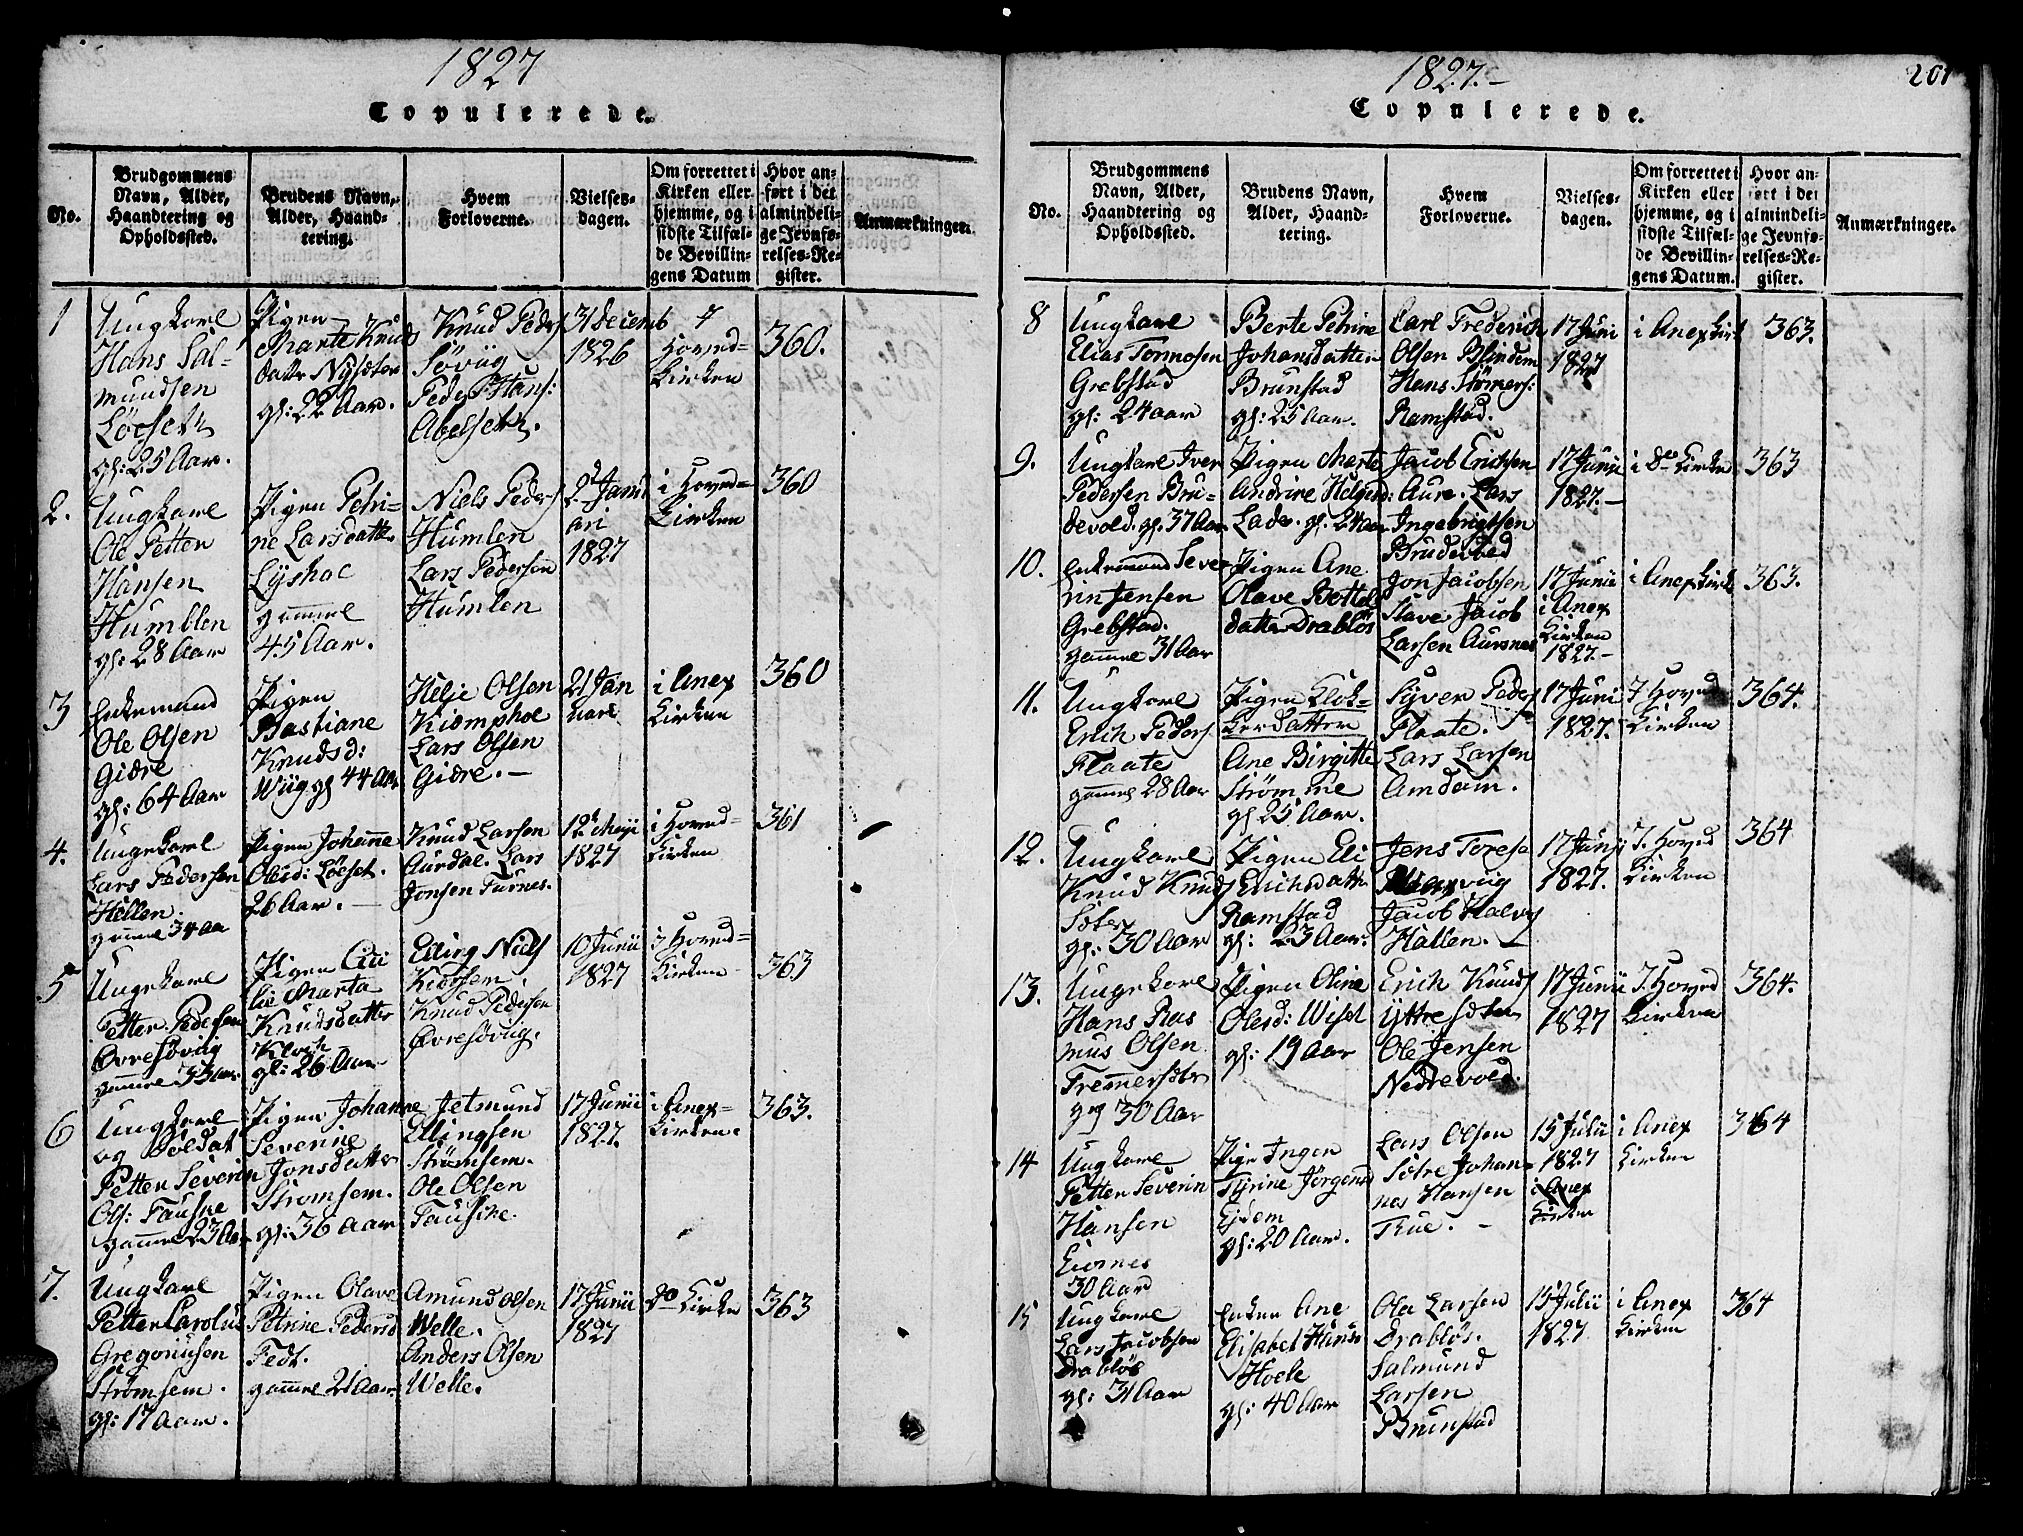 1827
Copulerede.
No.
Brudgommens Navn, Alder, Haandtering og Opholdssted.
Brudens Navn, Alder, Haandtering.
Hvem Forloverne.
Vielsesdagen.
Om forrettet i Kirken eller hjemme, og i sidste Tilfælde Bevillingens Datum
Hvor anført i det almindelige Jevnførelses-Register.
Anmærkninger.
1
Ungkarl
Hans Salmundsen
Løeset
gl: 25 Aar.
Pigen
Marte Knuds
datter Nysæter
gl: 22 Aar.
Knud Peders
Søviig
Peder Hans:
Abelset.
31 Decemb
1826
I
Hoved=
Kirken
360.
2.
Ungkarl
Ole Petter
Hansen
Humblen
gl: 28 Aar
Pigen Petri-
ne Larsdatter
Lyshol
gamle
45 Aar.
Niels Peders
Humlen
Lars Pedersen
Humlen
2 Janu
ari
1827
i Hoved=
Kirken
360
3
Enkemand
Ole Olsen
Giære
gl: 64 Aar
Pigen
Bastiane
Knudsd:
Wiig gl 44 Aar
Helje Olsen
Kiemphol
Lars Olsen
Giære. —
21 Jan
uari
i Anex
Kirken
360
4.
Ungekarl
Lars Pedersen
Hellen.
gamle 34 Aa
Pigen Johanne
Olesd: Løeset.
26 Aar. —
Knud Larsen
Aurdal. Lars
Jonsen Furnes.
12 Maji
1827
i Hoved=
Kirken
361
5
Ungekarl
Petter Pedersen
Øvresøviig
gamle 33 Aar
Pigen
Marta
Knudsdatter
gl: 26 Aar
Elling Niels
Knud Pedersen
Øvresøviig.
10 Junii
1827
I Hoved=
Kirken
363
6
Ungkarl
og Soldat
Petter Severin
Ols: Fauske
gamle 23 Aar
Pigen Johanne
Severine
Jonsdatter
Strømsem.
gl: 36 Aar
Jetmund
Ellingsen
Strømsem.
Ole Olsen
Fauske.
17 Junii
1827.
i Anex=
Kirken.
363.
7.
Ungkarl
Petter Carolus
Gregoriusen
Strømsem.
gl: 17 Aar.
Pigen Olave
Petrine Pedersd
Fedt.
gamle 21 Aar.
Amund Olsen
Welle.
Anders Olsen
Welle.
17 Junii
1827
do Kirke
363
1827.—
201
Copulerede.
No.
Brudgommens Navn, Alder, Haandtering og Opholdssted.
Brudens Navn, Alder, Haandtering.
Hvem Forloverne.
Vielsesdagen.
Om forrettet i Kirken eller hjemme, og i sidste Tilfælde Bevillingens Datum.
Hvor anført i det almindelige Jevnførelses-Register.
Anmærkninger.
8
Ungkarl
Elias Tormosen
Grebstad
gl: 24 Aar
Berte Petrine
Johansdatter
Brunstad
gl: 25 Aar.
Carl Frederich
Olsen Blindem
Hans Stømers:
Ramstad.
17 Juni
1827
i Anexkirk
363.
9.
Ungkarl Iver
Pedersen Bru-
devold. gl. 37 Aar
Pigen Marte
Andrine Helgesd:
Lade. gl. 24 Aar
Jacob Erichsen
Aure. Lars
Ingebrigtsen
17 Junii
1827.—
i do Kirke
363
10.
Enkemand Seve
rin Jensen
Grebstad.
gamle 31 Aar
Pigen Ane
Olave Bottel
datter Drabløs
Jon Jacobsen
Slave Jacob
Larsen Aursnes
17 Junii
i Anex
Kirken
1827.—
i Anexkirk
363.
11.
Ungkarl
Erich Peders
Flaate
gamle 28 Aar
Pigen Klok-
kerdatter
Ane Birgitte
Strømme
gl 25 Aar.
Syver Peders
Flaate.
Lars Larsen
Amdam.
17 Juni
1827.
I Hoved
Kirken
364.
12.
Ungkarl
Knud Knuds
Sæter
gl: 30 Aar
Pigen Eli
Erichsdatter
Ramstad
gl: 23 Aar.
Jens Tores
Jacob Halvs
Hallen. —
17 Junii
1827.
I. Hoved
Kirken
364
13.
Ungekarl
Hans Ras
mus Olsen
Fremmersæter
gl 30 Aar
Pigen Oline
Olesd: Wiset
gl: 19 Aar
Erich Knuds
Yttresæter
Ole Jensen
Nedrevold.
17 Junii
1827
I. Hoved
Kirken
364.
14
Ungkarl
Petter Severin
Hansen
30 Aar
Pige Inger
Tyrine Jørgens
Ejdem
gl: 20 Aar.
Lars Olsen
Sætre Johan-
nes Hansen
TRue. —
15 Julii
1827
i Anex
Kirke
i Anex
Kirken
364
15
Ungkarl
Lars Jacobsen
Drabløs
gl: 31 Aar
Enken Ane
Elisabet Hans
Hoele
gl: 40 Aar
Ole Larsen
Drabløs.
Salmund
Larsen
Brunstad
15 Julii
1827
i Anex
Kirken
364